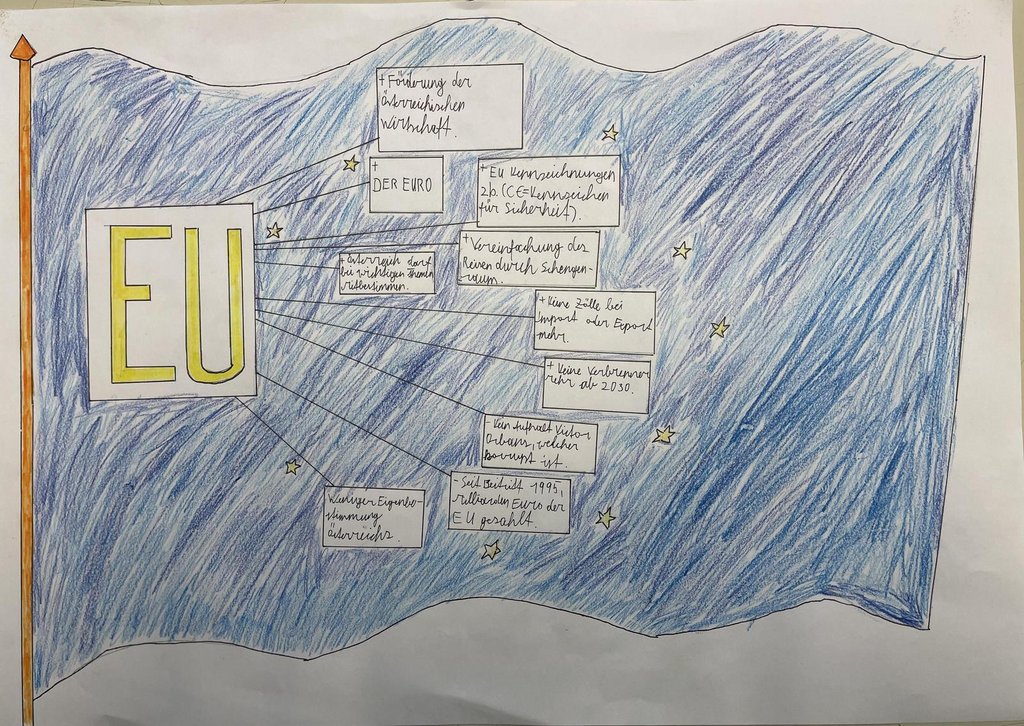 + Förderung der
österreichischen
Wirtschaft.
+
DER EURO
+ EU Kennzeichnungen
zb. (C€=Kennzeichen
für Sicherheit).
EU
+ Vereinfachung des
Reisen durch Schengen-
raum.
+ Österreich darf
bei wichtigen Themen
mitbestimmen.
+ Keine Zölle bei
Import oder Export
mehr.
+ Keine Verbrenner
mehr ab 2030.
- Kein Victor
Orbans, welcher
korrupt ist.
- Seit Beitritt 1995,
milliarden Euro der
EU gezahlt.
Weniger Eigenbe-
stimmung
Österreichs.